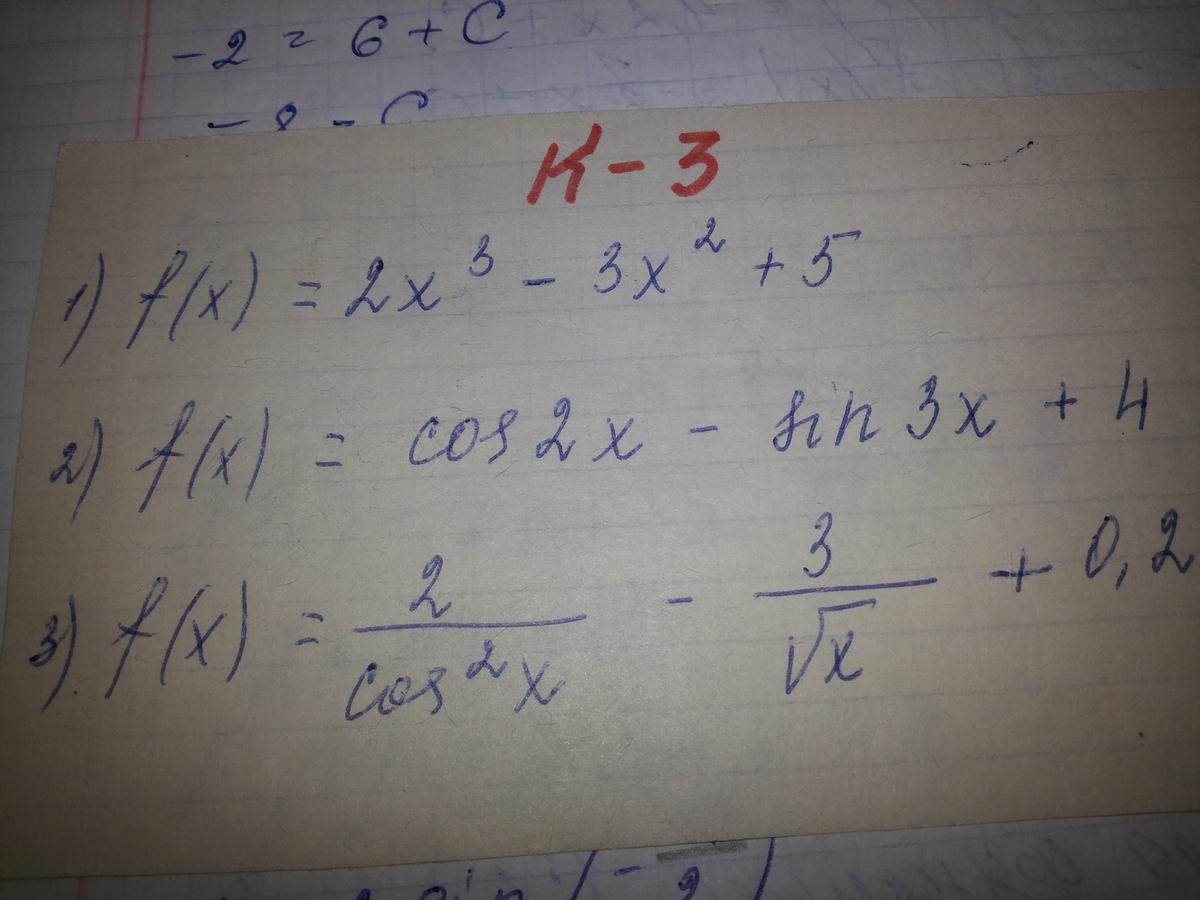 -2 = 6 + C
-8 = C
К-3
1) f(x) = 2x³ - 3x² + 5
2) f(x) = cos 2x - sin 3x + 4
3) f(x) = 2/cos²x - 3/√x + 0,2